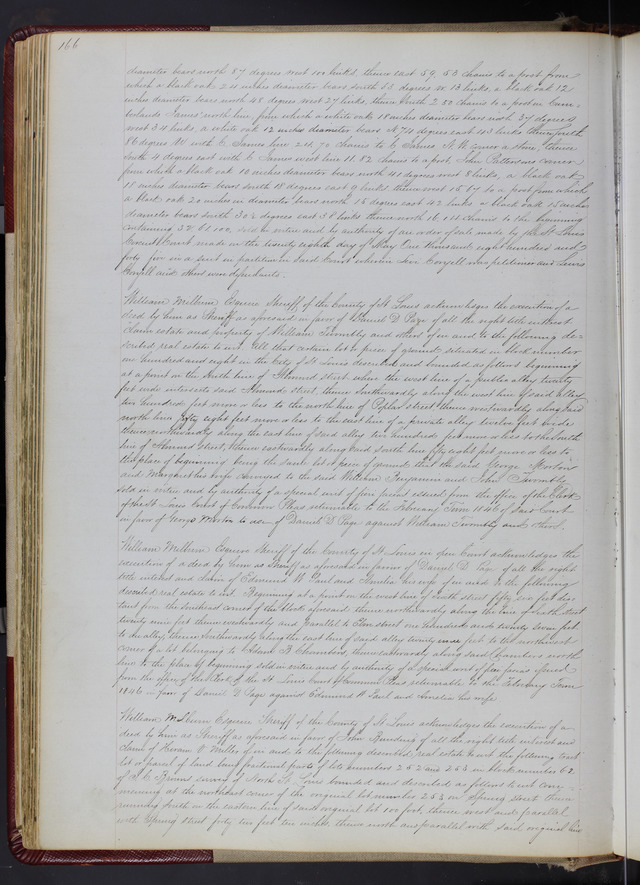 166
diameter bears north 57 degrees west 100 links, thence east 59, 53 chains to a post from
which a black oak 24 inches diameter bears south 33 degrees w. 13 links, a black oak 12
inches diameter bears north 48 degrees west 27 links, thence south 2 50 chains to a post in
James' north line from which a white oak 18 inches diameter bears north 37 degrees
west 34 links a white oak 12 inches diameter bears N 74 degrees east links thence north
86 degrees W with James line 24. 70 chains to James N. W. corner a stone, thence
south 4 degrees east with James west line 11. 82 chains to a post, John Pattersons corner
from which a black oak 10 inches diameter bears north 40 degrees west 8 links, a black oak
18 inches diameter bears south 18 degrees east 9 links thence west 15 67 to a post from which
a black oak 20 inches in diameter bears north 15 degrees east 42 links a black oak 15 inches
diameter bears south 30½ degrees east 38 links thence north chains to the beginning
containing sold in entire and by authority of an order of sale made by the St Louis
Circuit Court made on the twenty eighth day of May One thousand eight hundred and
forty five in a suit in partition in said Court wherein Coryell was petitioner and Lewis
and others were defendants.
William Milburn Esquire Sheriff of the County of St Louis acknowledges the execution of a
deed by him as Sheriff as aforesaid in favor of Daniel D. Page of all the right title interest
claim estate and property of William Twombly and others of in and to the following de-
scribed real estate to wit: All that certain lot or piece of ground situated in block number
one hundred and eight in the City of St Louis described and bounded as follows beginning
at a point in the South line of Almond street where the west line of a public alley twenty
feet wide intersects said Almond street, thence Southwardly along the west line of said alley
two hundred feet more or less to the north line of Poplar street thence westwardly along said
north line fifty eight feet more or less to the east line of a private alley twelve feet wide
thence northwardly along the east line of said alley two hundred feet more or less to the South
line of Almond Street, thence eastwardly along said South line fifty eight feet more or less to
the place of beginning being the same lot or piece of ground that the said George Morton
and Margaret his wife conveyed to the said William Benjamin and John Twombly
sold in entire and by authority of a special writ of fieri facias issued from the office of the Clerk
of the St Louis Court of Common Pleas returnable to the February Term 1846 of said Court
in favor of George Morton to use of Daniel D Page against William Twombly and others.
William Milburn Esquire Sheriff of the County of St Louis in open Court acknowledges the
execution of a deed by him as Sheriff as aforesaid in favor of Daniel D. Page of all the right
title interest and claim of Edmund W. Paul and Amelia his wife of in and to the following
described real estate to wit: Beginning at a point on the west line of sixth street fifty six feet dis-
tant from the Southeast corner of the block aforesaid thence northwardly along the line of sixth street
twenty nine feet thence westwardly and parallel to Elm street one hundred and twenty seven feet
to an alley, thence Southwardly along the east line of said alley twenty nine feet to the northwest
corner of a lot belonging to Adam B Chambers, thence eastwardly along said Chambers north
line to the place of beginning sold in entire and by authority of a special writ of fieri facias issued
from the office of the Clerk of the St Louis Court of Common Pleas returnable to the February Term
1846 in favor of Daniel D Page against Edmund W Paul and Amelia his wife
William Milburn Esquire Sheriff of the County of St Louis acknowledges the execution of a
deed by him as Sheriff as aforesaid in favor of John of all the right title interest and
claim of Hiram V Miller of in and to the following described real estate to wit the following tract
lot or parcel of land being fractional parts of lots numbers 252 and 253 in block number 62
of Browns survey of North St. Louis bounded and described as follows to wit com-
mencing at the northeast corner of the original lot number 253 on Spring street thence
running south on the eastern line of said original lot 100 feet, thence west and parallel
with Spring street forty two feet ten inches, thence north and parallel with said original line